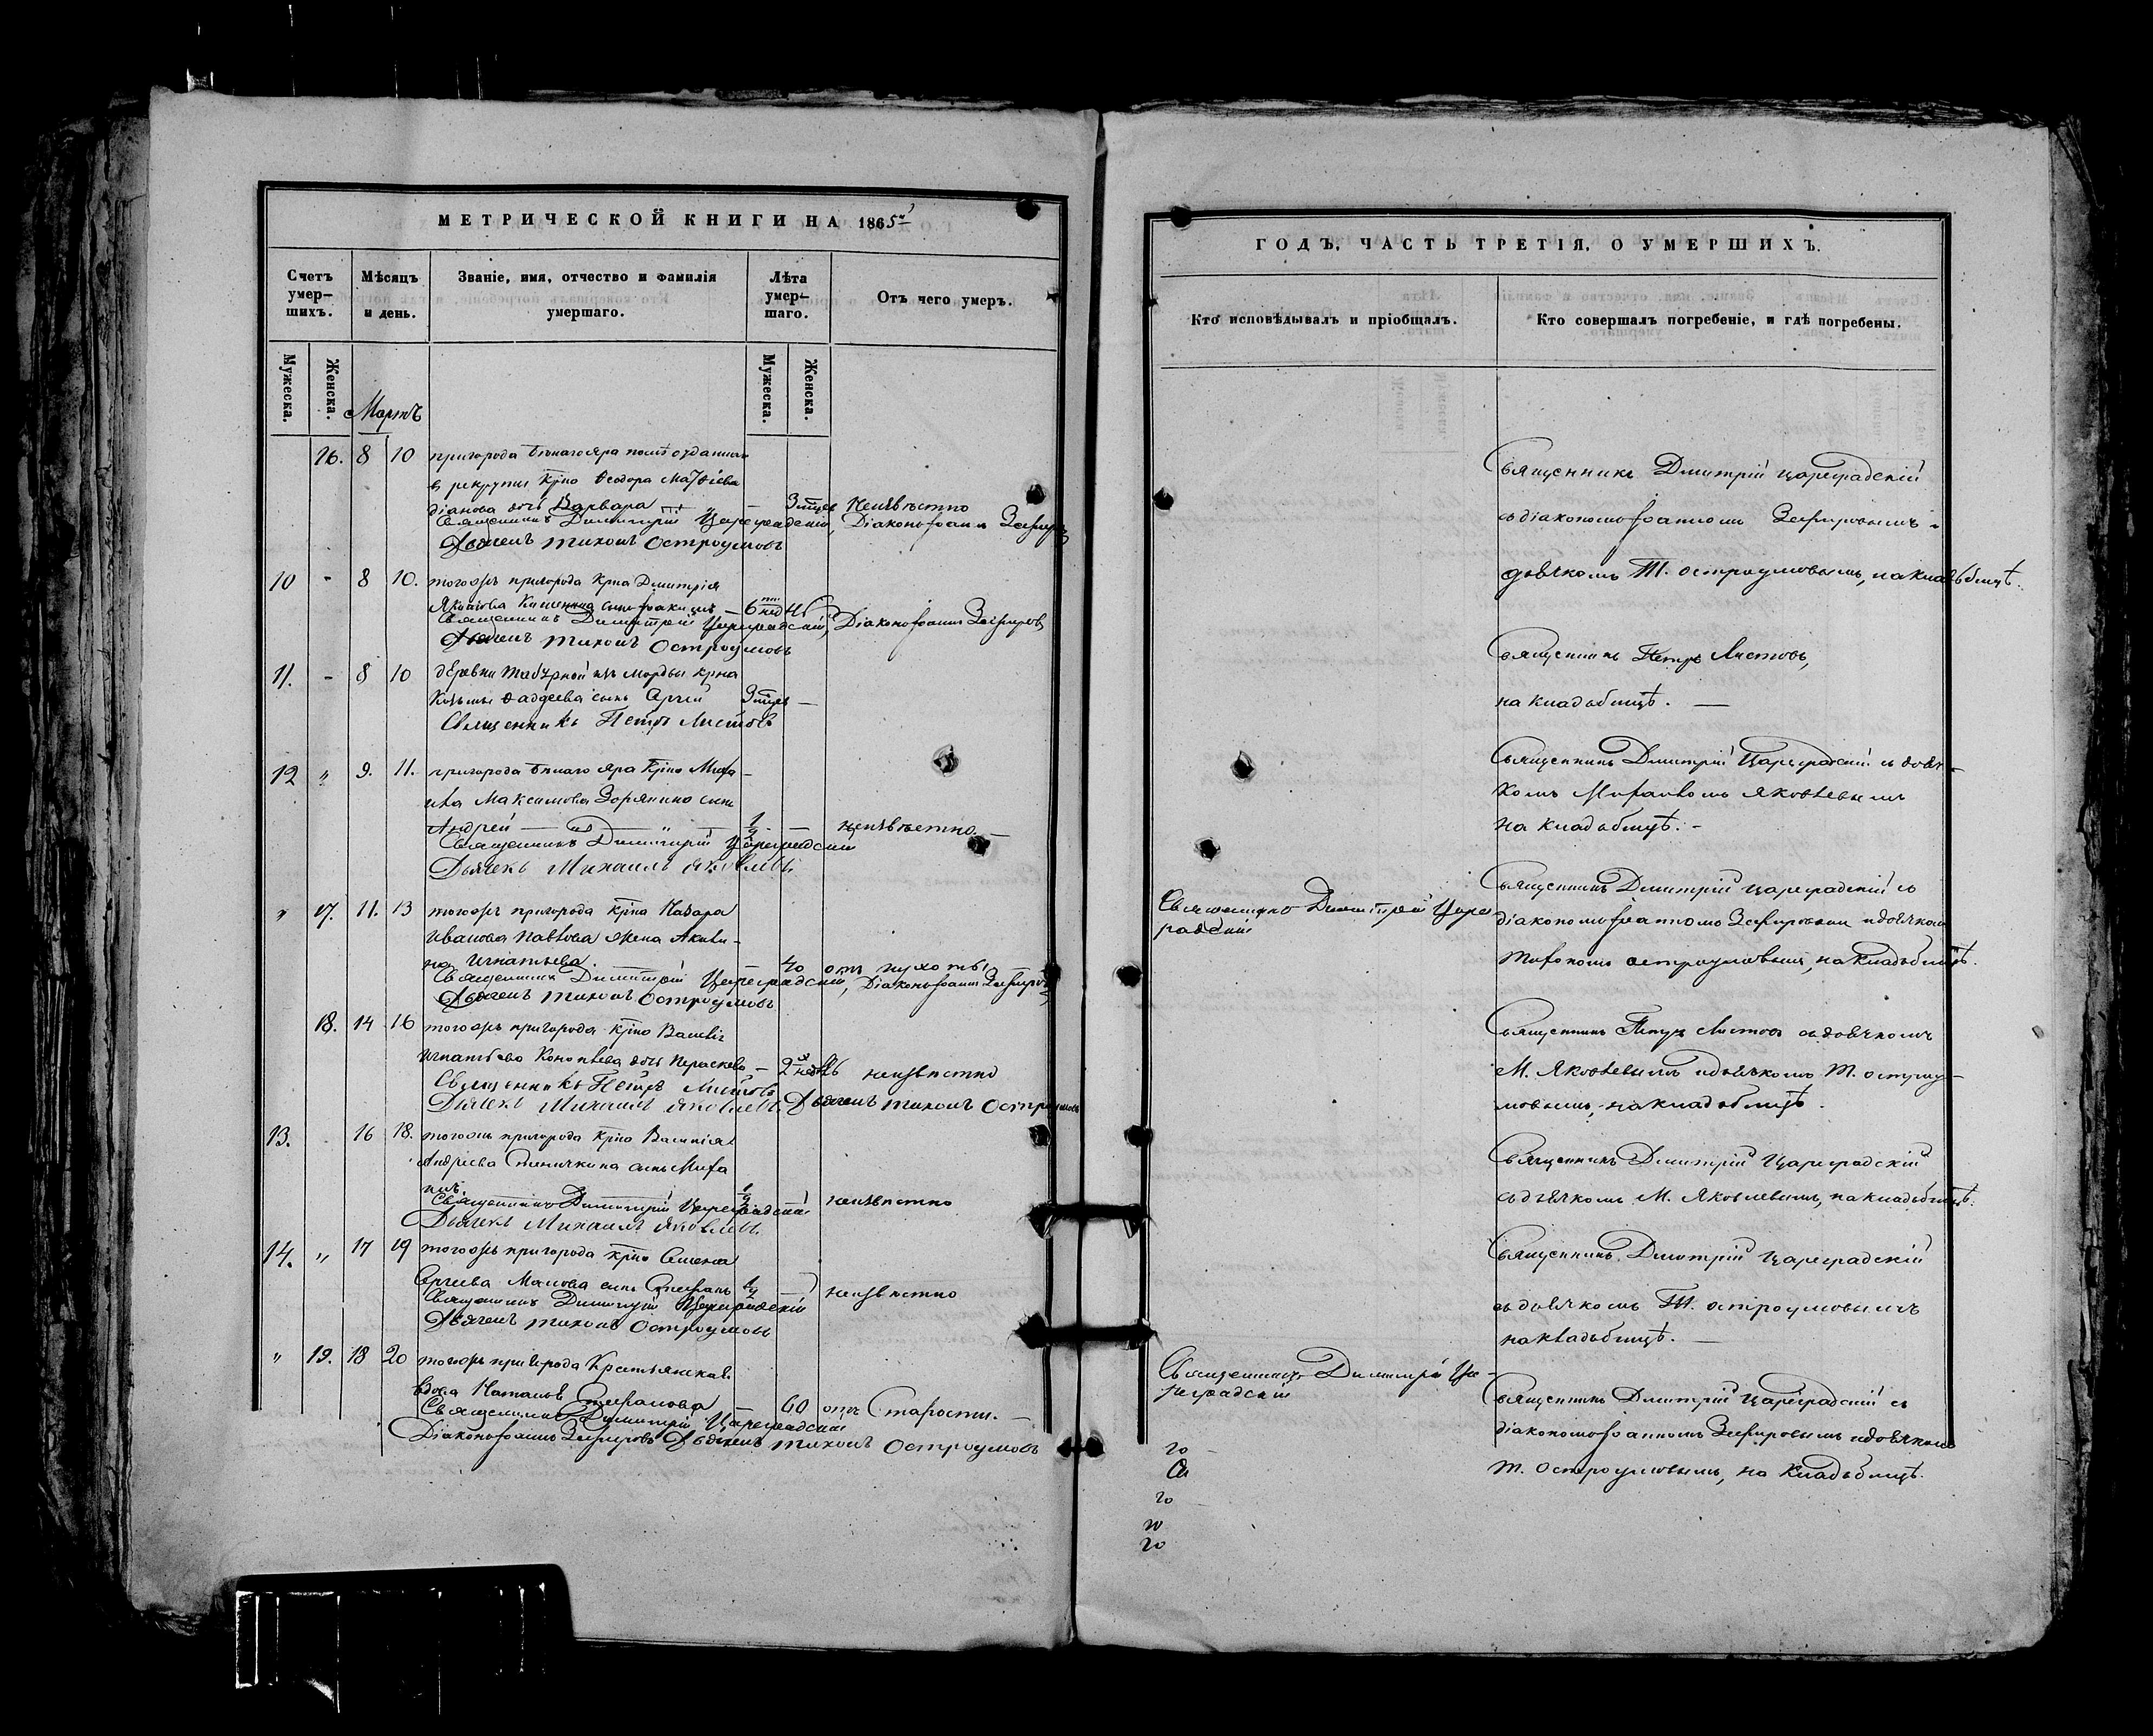 МЕТРИЧЕСКОЙ КНИГИ НА 1865й
Счетъ умер-шихъ.
Мѣсяцъ и день.
Званіе, имя, отчество и фамилія умершаго.
Лѣта умер-шаго.
Отъ чего умеръ.
Мужеска.
Женска.
Мужеска.
Женска.
Мартъ
16. 8 10 пригорода Бѣлаго яра послѣ отданнаго
в рекруты Кр͠на Ѳеодора Маѳѳіева
дочь Варвара — 3 мцев Неизвѣстно
Священникъ Димитрій Цареградскій, Діаконъ Іоаннъ Зефировъ
Дьячекъ Тихонъ Остроумовъ
10 " 8 10. тогожъ пригорода Кр͠на Димитрія
Яковлева сынъ Іоакимъ — 6 нед
Священникъ Димитрій Цареградскій, Діаконъ Іоаннъ Зефировъ
Дьячекъ Тихонъ Остроумовъ
11. - 8 10 деревни изъ Мордвы кр͠на
Козьмы Ѳаддеева сынъ Сргій 3 мцев —
Священникъ Петръ Листовъ
12 " 9. 11. пригорода Бѣлаго яра Кр͠на Миха-
ила Максимова Зорянина сынъ
Андрей — 1/2 — неизвѣстно. —
Священникъ Димитрій Цареградскій
Дьячекъ Михаилъ Яковлевъ.
" 17. 11. 13 тогожъ пригорода Кр͠на Назара
Иванова Павлова жена Акили-
на Игнатьева. — 40 отъ чухоты
Священникъ Димитрій Цареградскій, Діаконъ Іоаннъ Зефировъ
Дьячекъ Тихонъ Остроумовъ
18. 14 16 тогожъ пригорода Кр͠на Василія
Игнатьева дочь Параскева — 2 нед неизвѣстно
Священникъ Петръ Листовъ
Дьячекъ Михаилъ Яковлевъ. Дьячекъ Тихонъ Остроумовъ
13. 16 18. тогожъ пригорода Кр͠на Василія
Андреева сынъ Миха
илъ. 1/2 — неизвѣстно
Священникъ Димитрій Цареградскій
Дьячекъ Михаилъ Яковлевъ.
14. " 17 19 тогожъ пригорода кр͠на Семена
Сргіева сынъ Стефанъ — неизвѣстно
Священникъ Димитрій Цареградскій
Дьячекъ Тихонъ Остроумовъ
" 19. 18 20 тогожъ пригорода Крестьянская
вдова Наталья Стефанова — 60 отъ Старости. —
Священникъ Димитрій Цареградскій
Діаконъ Іоаннъ Зефировъ Дьячекъ Тихонъ Остроумовъ
ГОДЪ, ЧАСТЬ ТРЕТІЯ, О УМЕРШИХЪ.
Кто исповѣдывалъ и пріобщалъ.
Кто совершалъ погребеніе, и гдѣ погребены.
Священникъ Дмитрій Цареградскій
съ діакономъ Іоанномъ Зефировымъ и
дьячкомъ Т. Остроумовымъ, на кладбищѣ.
Священникъ Петръ Листовъ,
на кладбищѣ. —
Священникъ Дмитрій Цареградскій съ дьяч-
комъ Михаиломъ Яковлевымъ
на кладбищѣ. -
Священникъ Димитрій Царе
градскій
Священникъ Дмитрій Цареградскій съ
діакономъ Іоанномъ Зефировымъ и дьячком
Тихономъ Остроумовымъ, на кладбищѣ.
Священникъ Петръ Листовъ съ дьячкомъ
М. Яковлевымъ и дьячкомъ Т. Остроу-
мовымъ, на кладбищѣ.
Священникъ Дмитрій Цареградскій
съ дьячкомъ М. Яковлевымъ, на кладбищѣ.
Священникъ Дмитрій Цареградскій
съ дьячкомъ Т. Остроумовымъ
на кладбищѣ. —
Священникъ Димитрій Ца-
реградскій
Священникъ Дмитрій Цареградскій съ
діакономъ Іоанномъ Зефировымъ и дьячкомъ
Т. Остроумовымъ, на кладбищѣ.
го
го
го
го